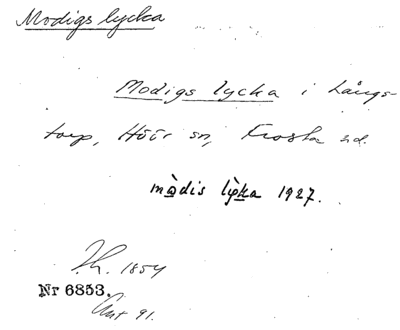 Modigs lycka
Modigs lycka i Långs-
torp, Höör sn, Frosta hd.
mòdis lỳka 1927.
1854
Nr 6853.
91.